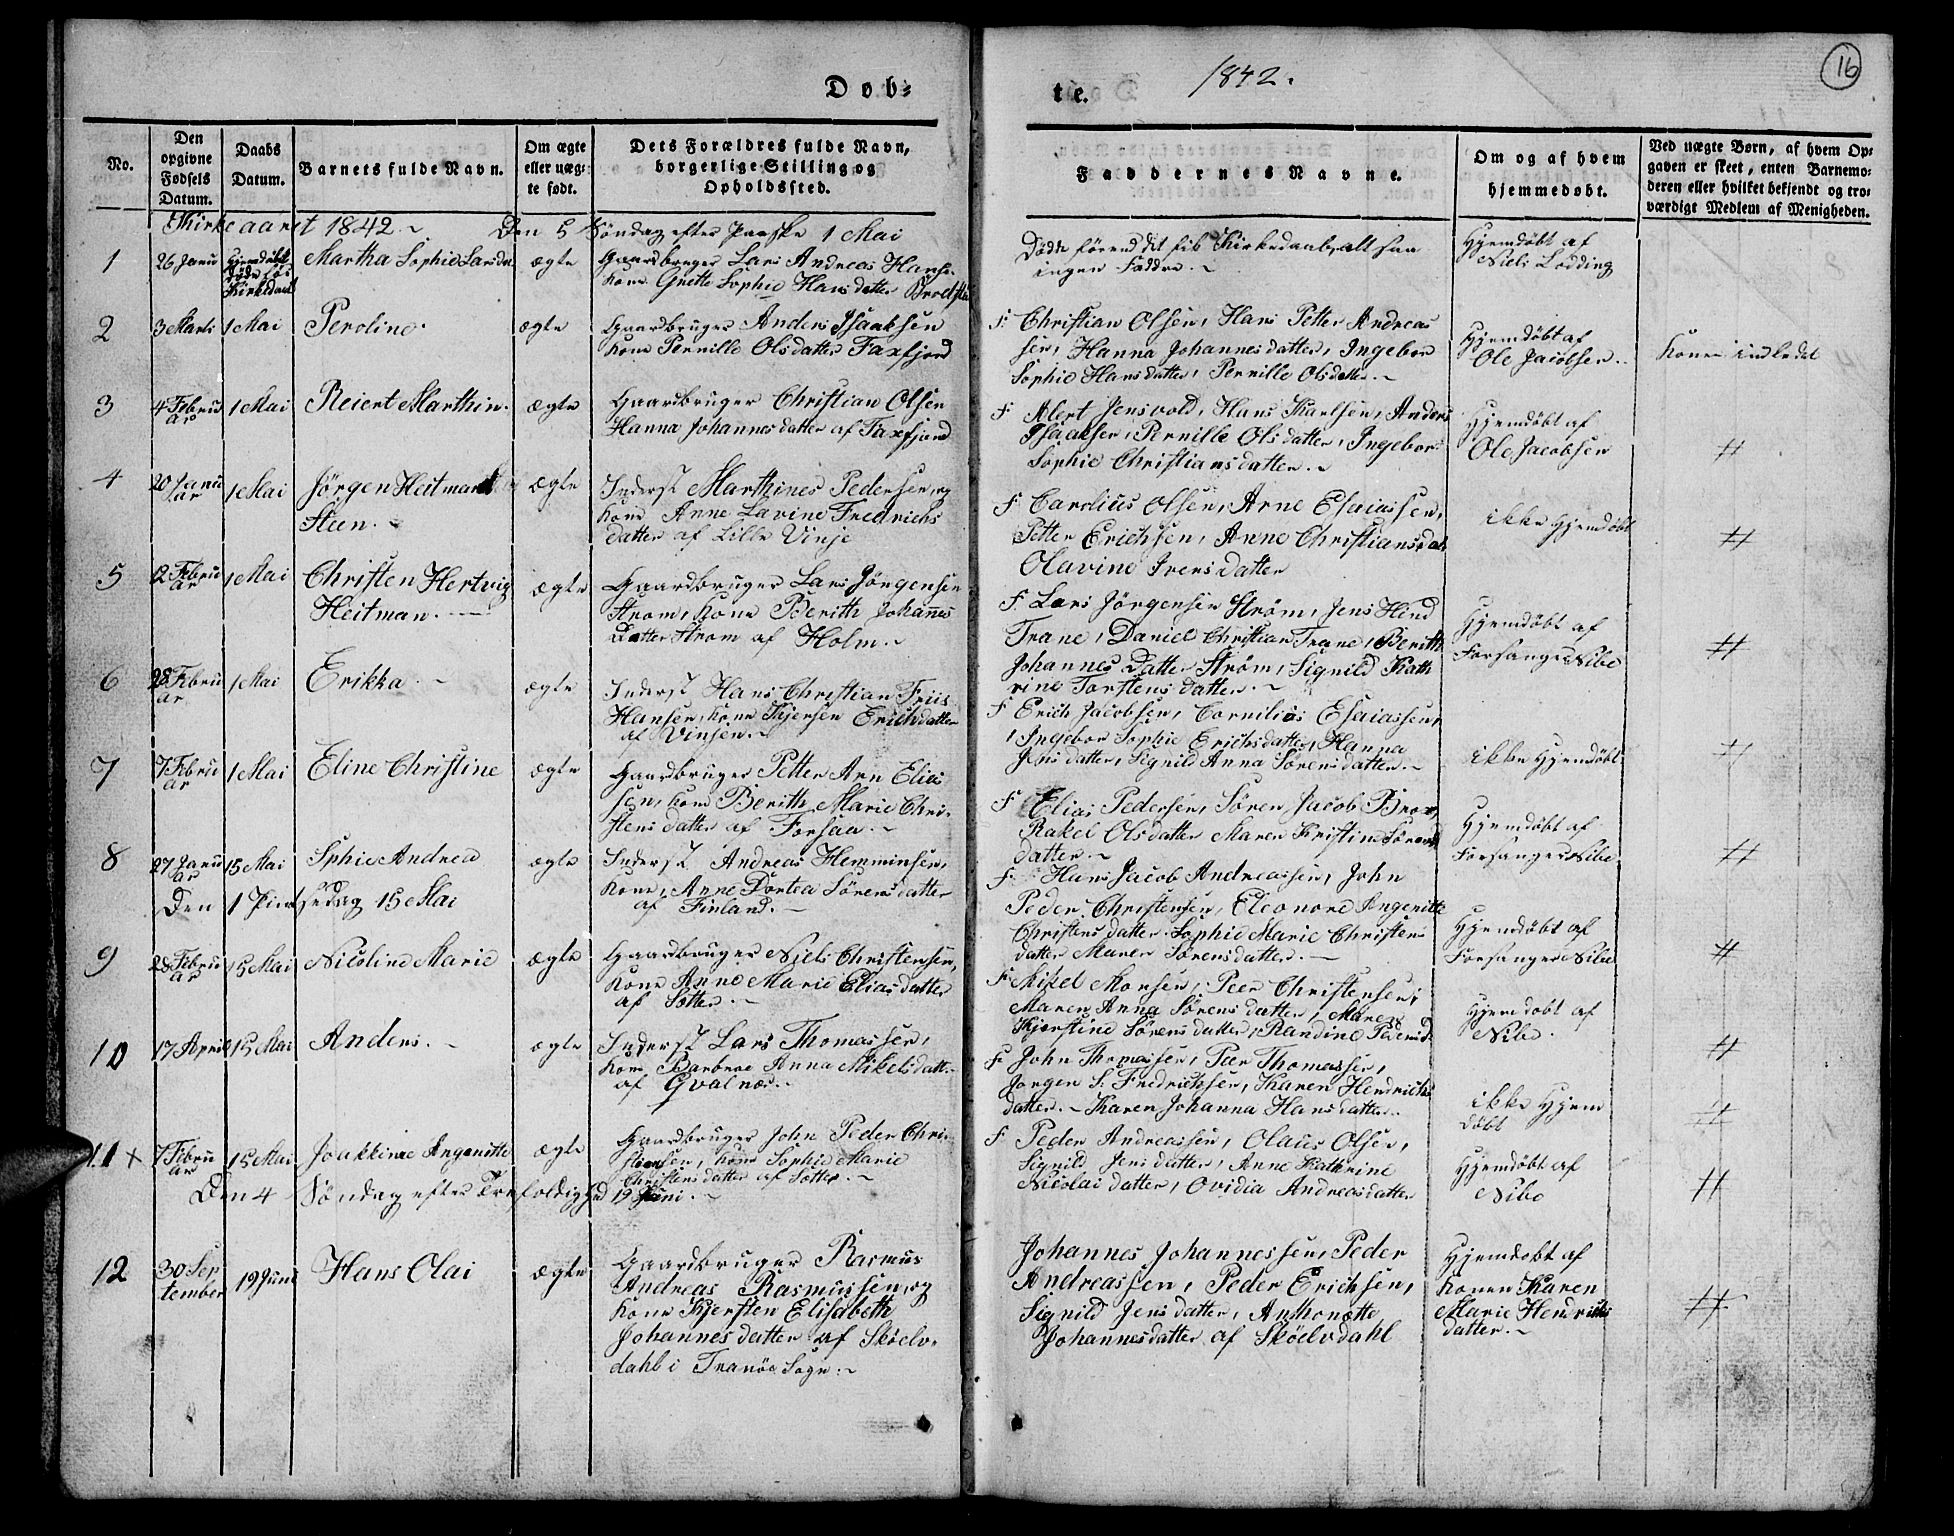 Døb-
te.
1842.
16
No.
Den
opgivne
Fødsels
Datum.
Daabs
Datum.
Barnets fulde Navn.
Om ægte
eller uæg-
te født.
Dets Forældres fulde Navn,
borgerlige Stilling og
Opholdssted.
Faddernes Navne.
Om og af hvem
hjemmedøbt.
Ved uægte Børn, af hvem Op-
gaven er skeet, enten Barnemo-
deren eller hvilket bekjendt og tro-
værdigt Medlem af Menigheden.
Kirkeaaret 1842. Den 5 Søndag efter Paaske 1 Mai
1
26 Janu
Hjemdøbt
døde før
Kirkedaab
Martha Sophie Larsdr
ægte
Gaardbruger Lars Andreas Hanse
Kone Grette Sophie Hansdatter
Døde førend det fik Kirkedaab, altsaa
ingen Faddre.
Hjemdøbt af
Niels Lødding
2
3 Marts
1 Mai
Peroline.
ægte
Gaardbruger Anders Isaaksen
Kone Pernille Olsdatter Faxfjord
F. Christian Olsen, Hans Petter Andreas
sen, Hanna Johannesdatter, Ingebor
Sophie Hansdatter, Pernille Olsdatter.
Hjemdøbt af
Ole Jacobsen.
Konen indledet
3
4 Febru
ar
1 Mai
Reiert Marthin.
ægte
Gaardbruger Christian Olsen
Hanna Johannesdatter af Faxfjord
F Alert Jensvold, Hans Karlsen, Anders
Isaaksen, Pernille Olsdatter, Ingebor
Sophie Christiansdatter.
Hjemdøbt af
Ole Jacobsen
#
4
20 Janu
ar
1 Mai
Jørgen Heitman
Steen.
ægte
Inderst Marthines Pedersen, og
Kone Anne Lavine Fredrichs
datter af Lille Vinje
F Carolius Olsen, Arne Esaiassen,
Petter Erichsen, Anne Christiansdat
Olavine Irensdatter
ikke Hjemdøbt
#
5
2 Febru
ar
1 Mai
Christen Hertvig
Heitman.
ægte
Gaardbruger Lars Jørgensen
Strøm, Kone Berith Johannes
Datter Strøm af Holm.
F. Lars Jørgensen Strøm, Jens Hind
Trane, Daniel Christian Trane, Berith
Johannes Datter Strøm, Signild Kath
rine Torstensdatter.
Hjemdøbt af
Forsanger Nibe
#
6
28 Febru
ar
1 Mai
Erikka.
ægte
Inderst Hans Christian Friis
Hansen, Kone Kjersten Erichdatter
af Vinjen.
F Erich Jacobsen, Cornilius Esaiassen,
Ingebor Sophie Erichsdatter, Hanna
Jensdatter, Signild Anna Sørensdatter.
ikke Hjemdøbt
#
7
7 Febru
ar
1 Mai
Eline Christine
ægte
Gaardbruger Petter Arn Elias
sen, Kone Berith Marie Chri-
stensdatter af Forsaa.
F Elias Pedersen, Søren Jacob Brox,
Rakel Olsdatter Maren Kristine Sørens
datter.
Hjemdøbt af
Forsanger Nibe
#
8
27 Janu
ar
15 Mai
Sphie Andrea
ægte
Inderst Andreas Hemminsen,
Kone, Anne Dortea Sørensdatter
af Finland.
F. Hans Jacob Andreassen, John
Peder Christensen, Eleonore Angenitte
Christensdatter. Sophie Marie Christens
datter Maren Sørensdatter.
Hjemdøbt af
Forsanger Nibe
#
Den 1 Pintsedag 15 Mai
9
28 Febru
ar
15 Mai
Nicoline Marie
ægte
Gaardbruger Niels Christensen,
Kone Anne Marie Eliasdatter
af Søtter.
F. Mikel Monsen, Peer Christensen,
Maren Anna Sørensdatter, Maren
Kjerstine Sørensdatter, Randine Pedersd.
Hjemdøbt af
Nibe.
#
10
17 April
15 Mai
Anders.
ægte
Inderst Lars Thomassen,
Kone Barbroe Anna Mikelsdatt.
af Qvalnæs.
F. John Thomassen, Peer Thomassen,
Jørgen S. Fredrichsen, Karen Hendrichs
datter. Karen Johanna Hansdatter.
ikke Hjem
døbt
#
11 x
7 Febru
ar
15 Mai
Joakkime Angenitte
ægte
Gaardbruger John Peder Chri-
stensen, Kone Sophie Marie
Christensdatter af Søtter.
F. Peder Andreassen, Olaus Olsen,
Signild Jensdatter, Anne Kathrine
Nicolaidatter, Ovidia Andreasdatter
Hjemdøbt af
Nibe
#
Den 4 Søndag efter Trefoldighed 19 Juni.
12
30 Sep
tember
19 Juni
Hans Olai
ægte
Gaardbruger Rasmus
Andreas Rasmussen, og
Kone Kjersten Elisabeth
Johannesdatter af Skøelv-
dahl i Tranøe Sogn.
Johannes Johannessen, Peder
Andreassen, Peder Erichsen,
Signild Jensdatter, Anthonætte
Johannesdatter af Skøelvdahl
Hjemdøbt af
Konen Karen
Marie Hendrichs
datter.
#